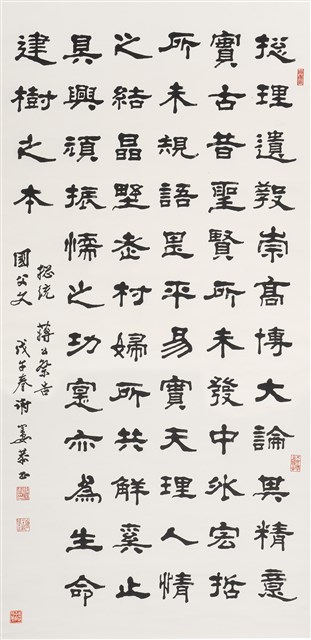 総理遺教崇高博大論其精意
實古昔聖賢所未發中外宏哲
所未規語其平易實天理人情
之結晶埜老村婦所共解奚止
具興頑振懦之功寔亦為生命
建樹之本
總統 蔣公祭告
國父文 戊午春謝姜恭